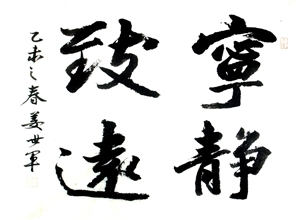 寧靜
致遠
乙未之春姜世軍